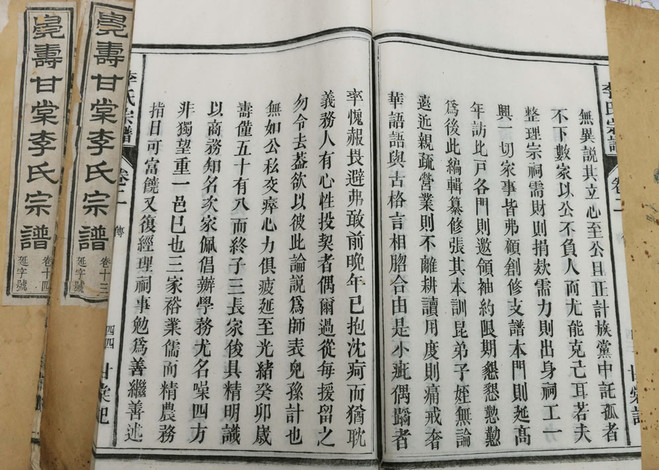 無異說其立心至公且正計族黨中託孤者
不下數家以公不負人而尤能克己耳若夫
整理宗祠需財則捐欵需力則出身祠工一
興一切家事皆弗顧創修支譜本門則延高
年訪比戸各門則邀領袖約限期懇懇懃懃
為後此編輯纂修張其本訓昆弟子姪無論
遠近親疏營業則不離耕讀用度則痛戒奢
華語語與古格言相脗合由是小疵偶蹈者
率愧赧畏避弗敢前晚年已抱沈疴而猶耽
義務人有心性投契者偶爾過從每援留之
勿令去葢欲以彼此論說為師表兒孫計也
無如公私交瘁心力俱疲延至光緒癸卯歲
壽僅五十有八而終子三長家俊具精明識
以商務知名次家佩倡辦學務尤名噪四方
非獨望重一邑已也三家裕業儒而精農務
指日可富饒又復經理祠事勉為善繼善述
李氏宗譜
卷二
傳
四四
甘棠記
李氏宗譜
卷二
甘棠記
壽甘棠李氏宗譜
卷十三
延字號
壽甘棠李氏宗譜
卷十四
延字號